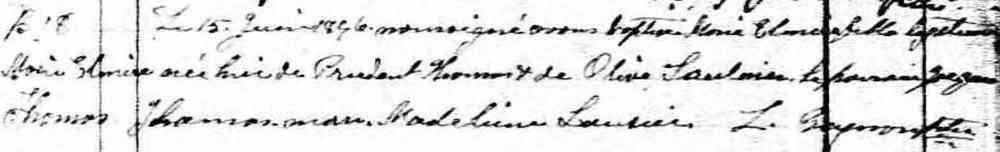 B 18 Le 15 Juin 1896 nous soigné avons baptisé Marie Elmire fille légitime
Marie Elmire née hier de Prudent Thomas & de Olive Saulnier. Le parrain
Thomas Thomas mar. Madeleine Saunier L.